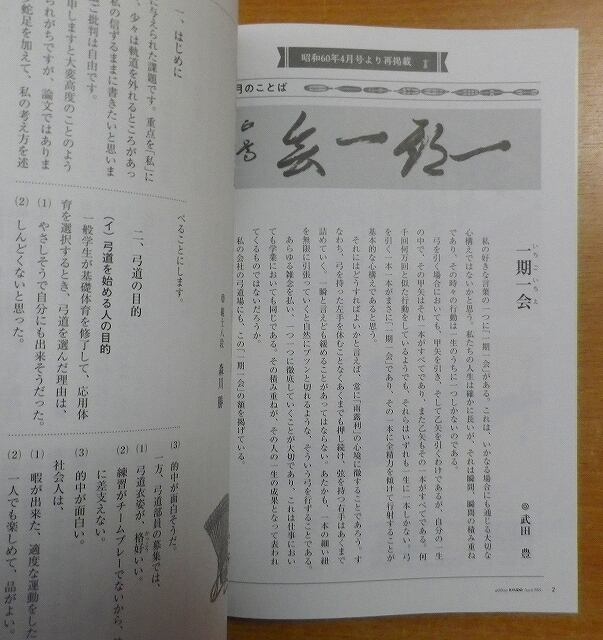 昭和60年4月号より再掲載
月のことば
一期一会
いちごいちえ
一期一会
◎武田 豊
私の好きな言葉の一つに「一期一会」がある。これは、いかなる場合にも通じる大切な
心構えではないかと思う。私たちの人生は確かに長いが、それは瞬間、瞬間の積み重ね
であり、その時々の行動は一生のうちに一つしかないのである。
弓を引く場合においても、甲矢を引き、そして乙矢を引くわけであるが、自分の一生
の中で、その甲矢はそれ一本がすべてであり、また乙矢もその一本がすべてである。何
千回何万回と似た行動をしているようでも、それらはいずれも一生に一本しかない。弓
を引く一本一本がまさに「一期一会」であり、その一本に全精力を傾けて行射することが
基本的な心構えであると思う。
それにはどうすればよいかと言えば、常に「雨露利」の心境に徹することであろう。す
なわち、弓を持った左手を休むことなくあくまでも押し続け、弦を持つ右手はあくまで
詰めていく。一瞬と言えども緩めることがあってはならない。あたかも、一本の細い紐
を無限に引張っていくと自然にプツンと切れるような、そういう弓を行ずることである。
あらゆる雑念を払い、一つ一つに徹底していくことが大切であり、これは仕事におい
ても学業においても同じである。その積み重ねが、その人の一生の成果となって表われ
てくるものではないだろうか。
私の会社の弓道場にも、この「一期一会」の額を掲げている。
2
一、はじめに
に与えられた課題です。重点を「私」に
、少々は軌道を外れるところがあっ
私の信ずるままに書きたいと思いま
ご批判は自由です。
申しますと大変高度のことのよう
られがちですが、論文ではありま
蛇足を加えて、私の考え方を述
べることにします。
森川 勝
二、弓道の目的
(イ)弓道を始める人の目的
一般学生が基礎体育を修了して、応用体
育を選択するとき、弓道を選んだ理由は、
(1) やさしそうで自分にも出来そうだった。
(2) しんどくないと思った。
(3) 的中が面白そうだ。
一方、弓道部員の募集では、
(1) 弓道衣姿が、格好いい。
(2) 練習がチームプレーでないから、
に差支えない。
(3) 的中が面白い。
社会人は、
(1) 暇が出来た、適度な運動をした
(2) 一人でも楽しめて、品がよい。